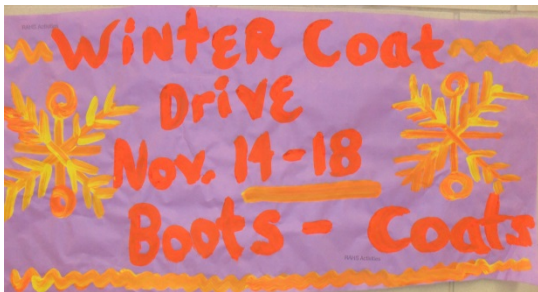 WiNtER Coat
DRivE
Nov. 14-18
Boots - Coats